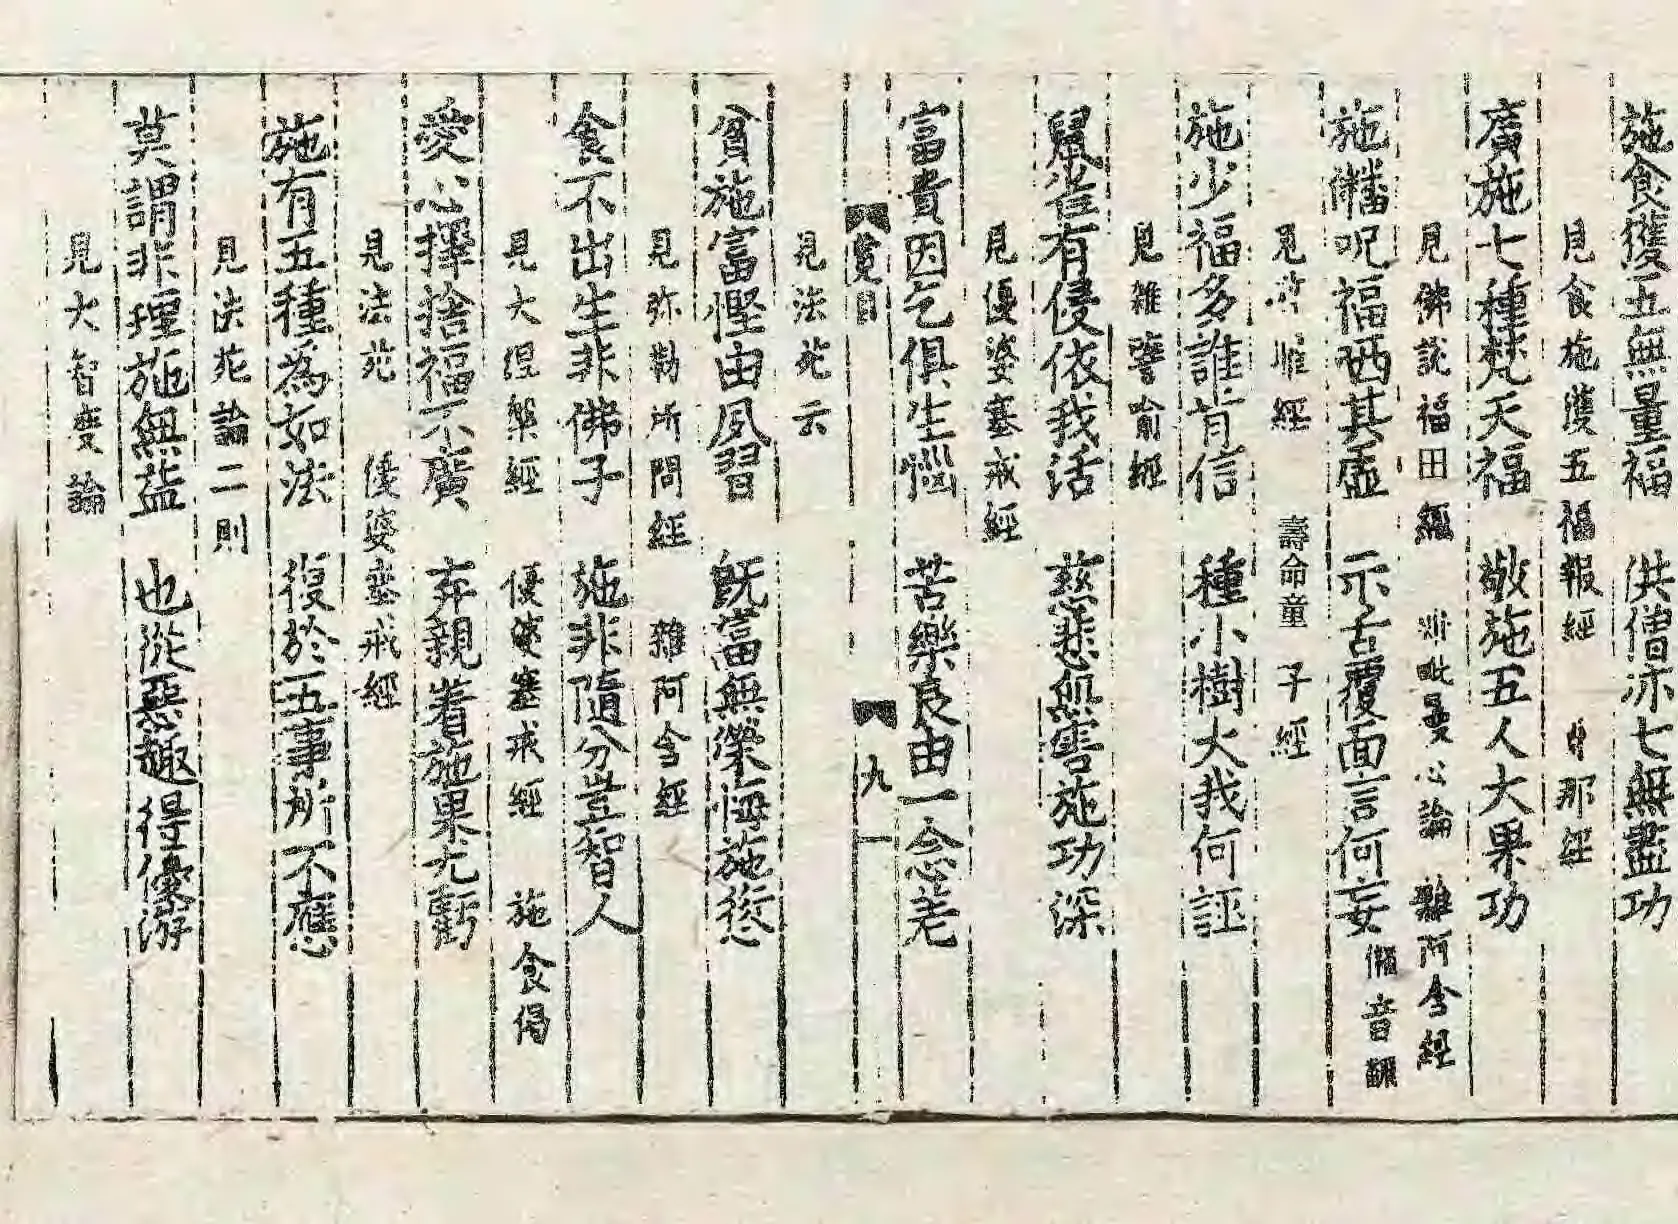 施食獲五無量福　供僧亦七無盡功
見食施獲五福報經　那經
廣施七種梵天福　敬施五人大果功
見佛說福田經　毗曼心論　雜阿含經
施幡呪福哂其虛　示舌覆面言何妄　音翻
見　經　壽命童子經
施少福多誰肯信　種小樹大我何誣
見雜譬喻經
鼠雀有侵依我活　慈悲無害施功深
見優婆塞戒經
富貴因乞俱生惱　苦樂良由一念差
覽目　九
見法苑云
貧施富慳由夙習　既富無樂悔施愆
見弥勒所問經　雜阿含經
食不出生非佛子　施非隨分豈智人
見大涅槃經　優婆塞戒經　施食偈
愛心擇捨福不廣　弃親着施果尤虧
見法苑　優婆塞戒經
施有五種為如法　復於五事所不應
見法苑論二則
莫謂非理施無益　也從惡趣得優游
見大智度論